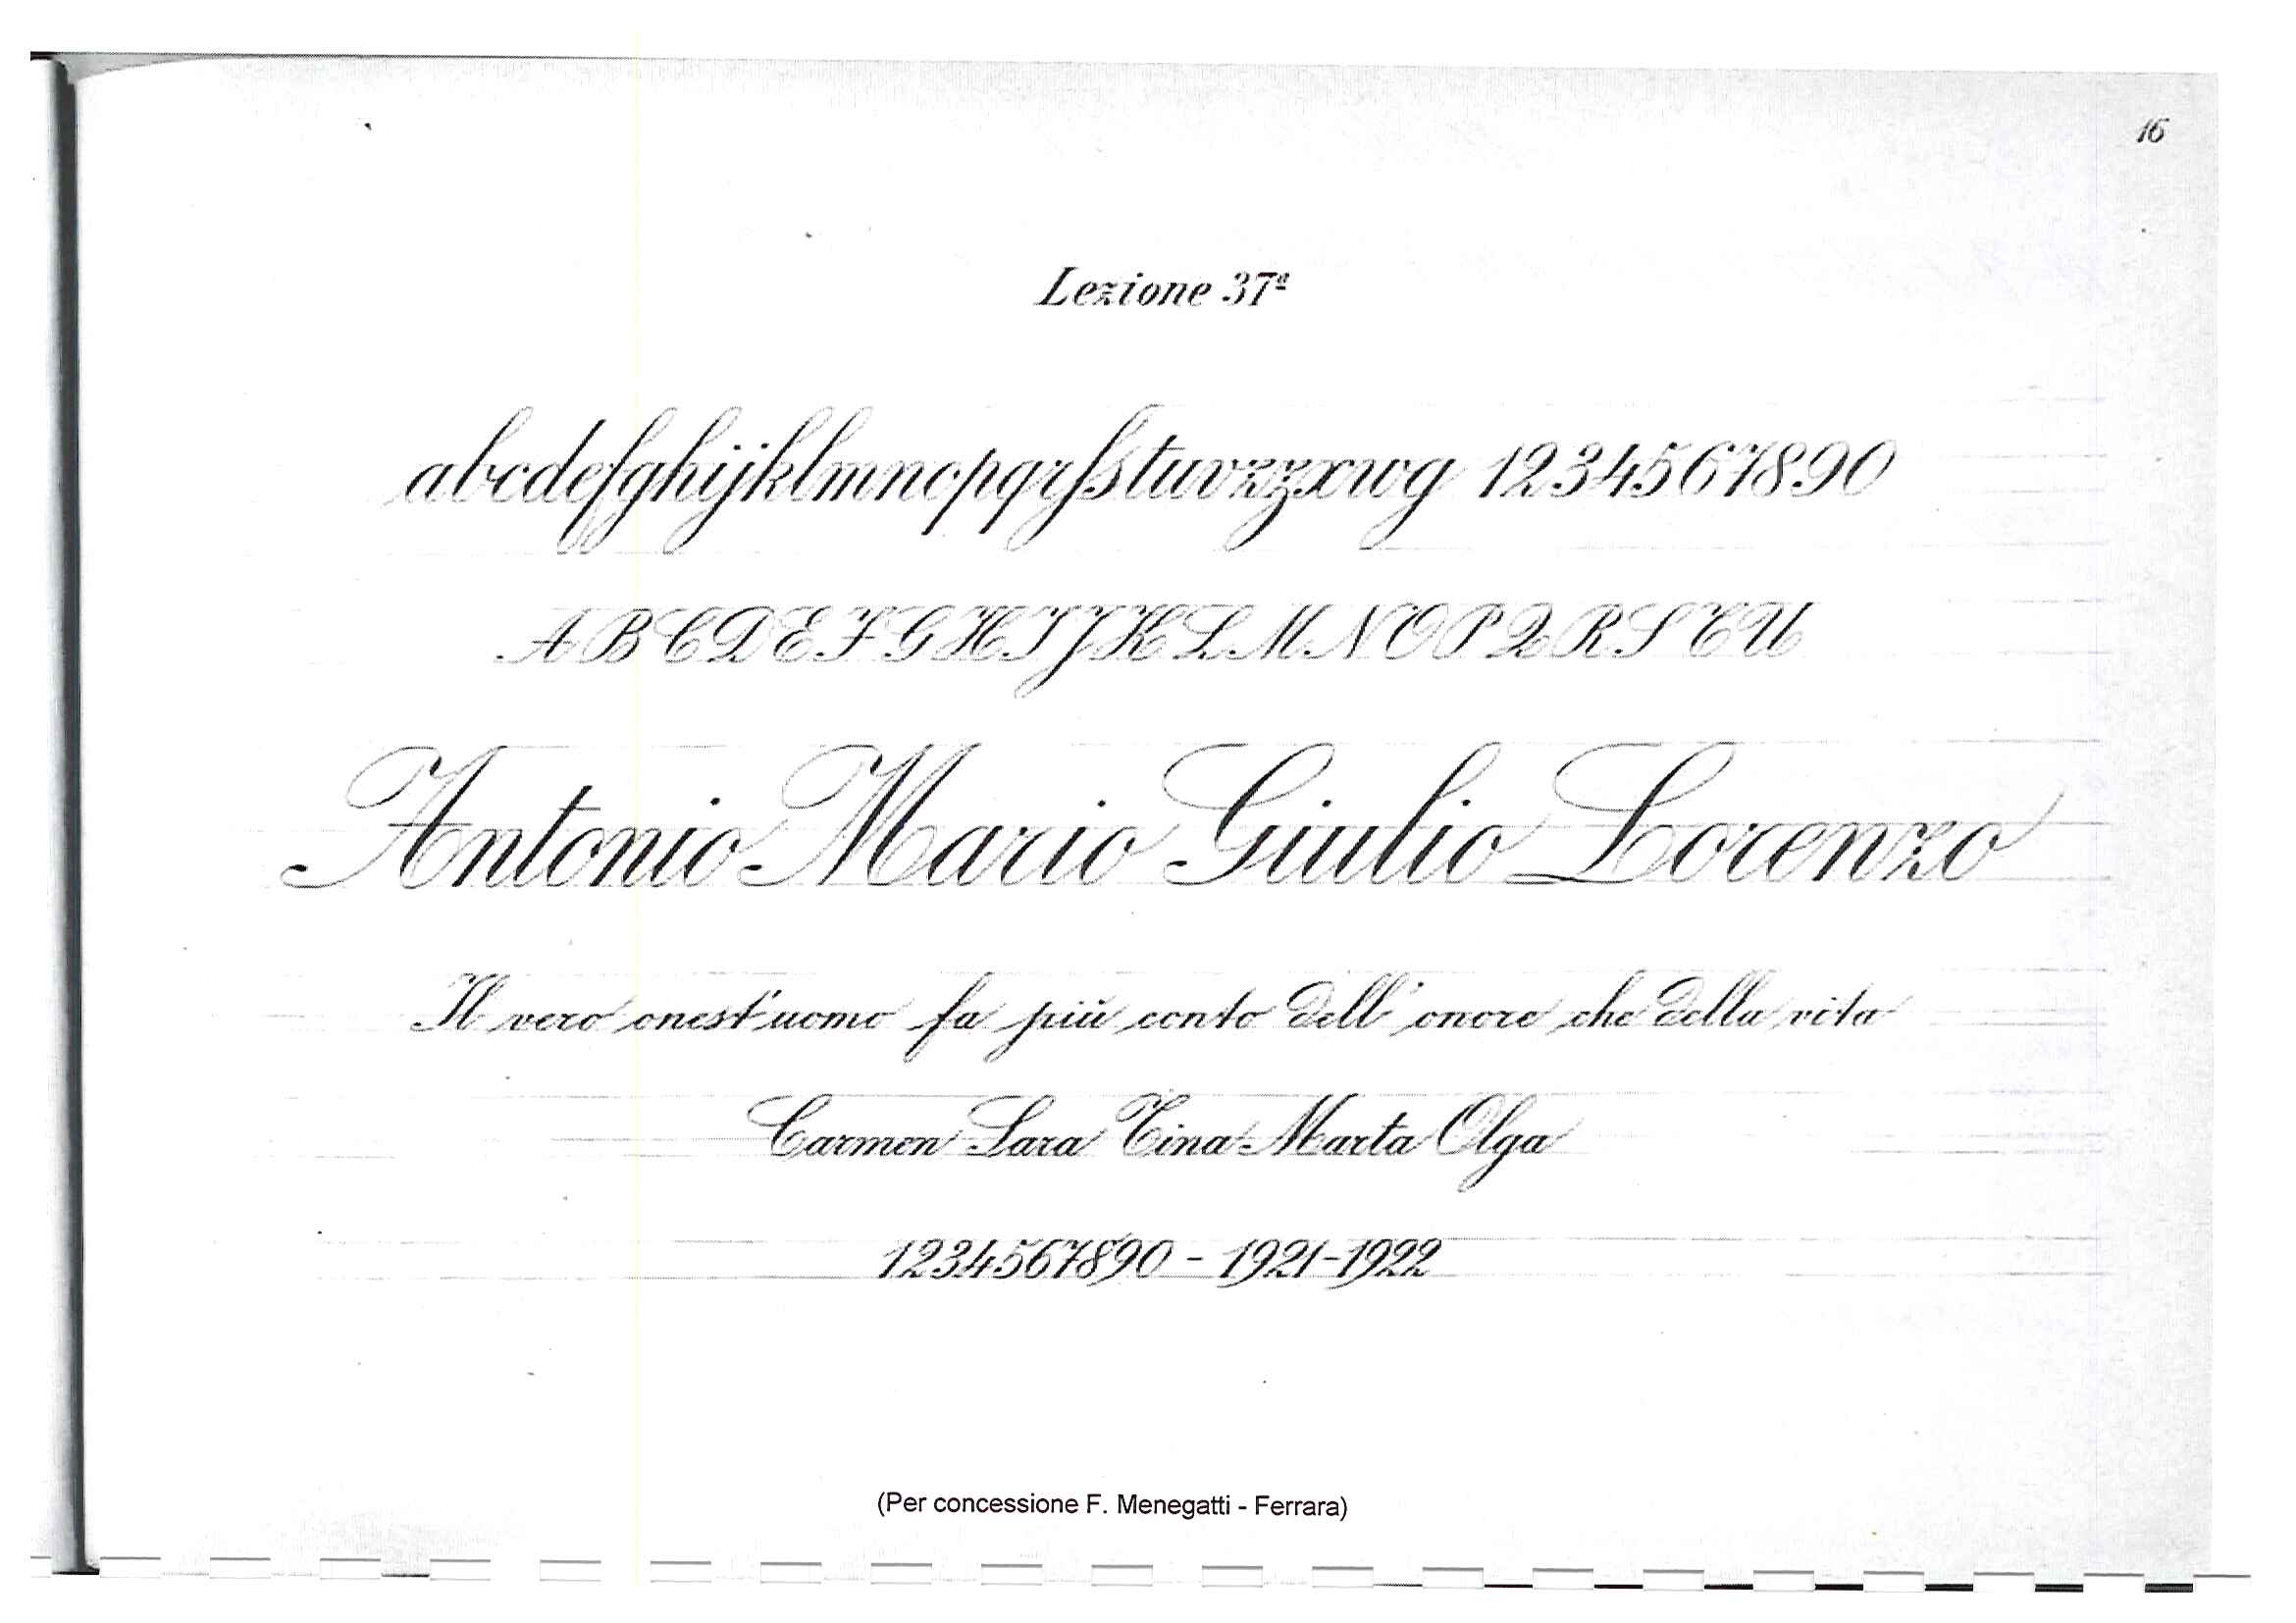 16
Lezione 37ª
abcdefghijklmnopqrſstuvzzxwy 1234567890
A B C D E F G H I J K L M N O P Q R S T U
Antonio Mario Giulio Lorenzo
Il vero onest'uomo fa più conto dell'onore che della vita
Carmen Sara Tina Marta Olga
1234567890 - 1921-1922
(Per concessione F. Menegatti - Ferrara)